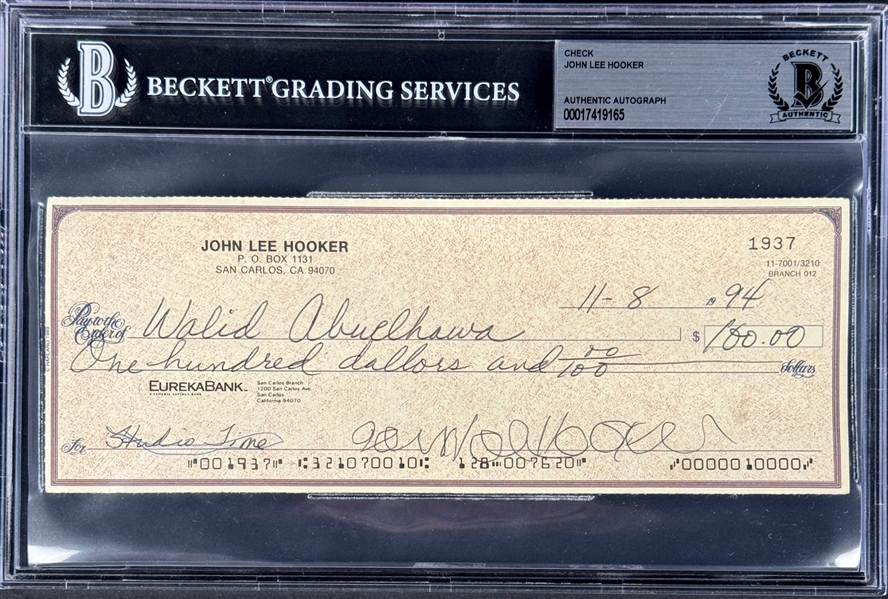 B
BECKETT® GRADING SERVICES
CHECK
JOHN LEE HOOKER
AUTHENTIC AUTOGRAPH
00017419165
BECKETT
B
AUTHENTIC
JOHN LEE HOOKER
P. O. BOX 1131
SAN CARLOS, CA 94070
1937
11-7001/3210
BRANCH 012
11-8 19 94
Pay to the
Order of Walid Abuelhawa $ 100.00
One hundred dallors and 00/100 Dollars
EUREKABANK
A FEDERAL SAVINGS BANK
San Carlos Branch
1200 San Carlos Ave.
San Carlos
California 94070
© HARLAND 1989
For Studio Time John Lee Hooker
⑈001937⑈ ⑆321070010⑆ 128⑉007620⑈ ⑈0000010000⑈